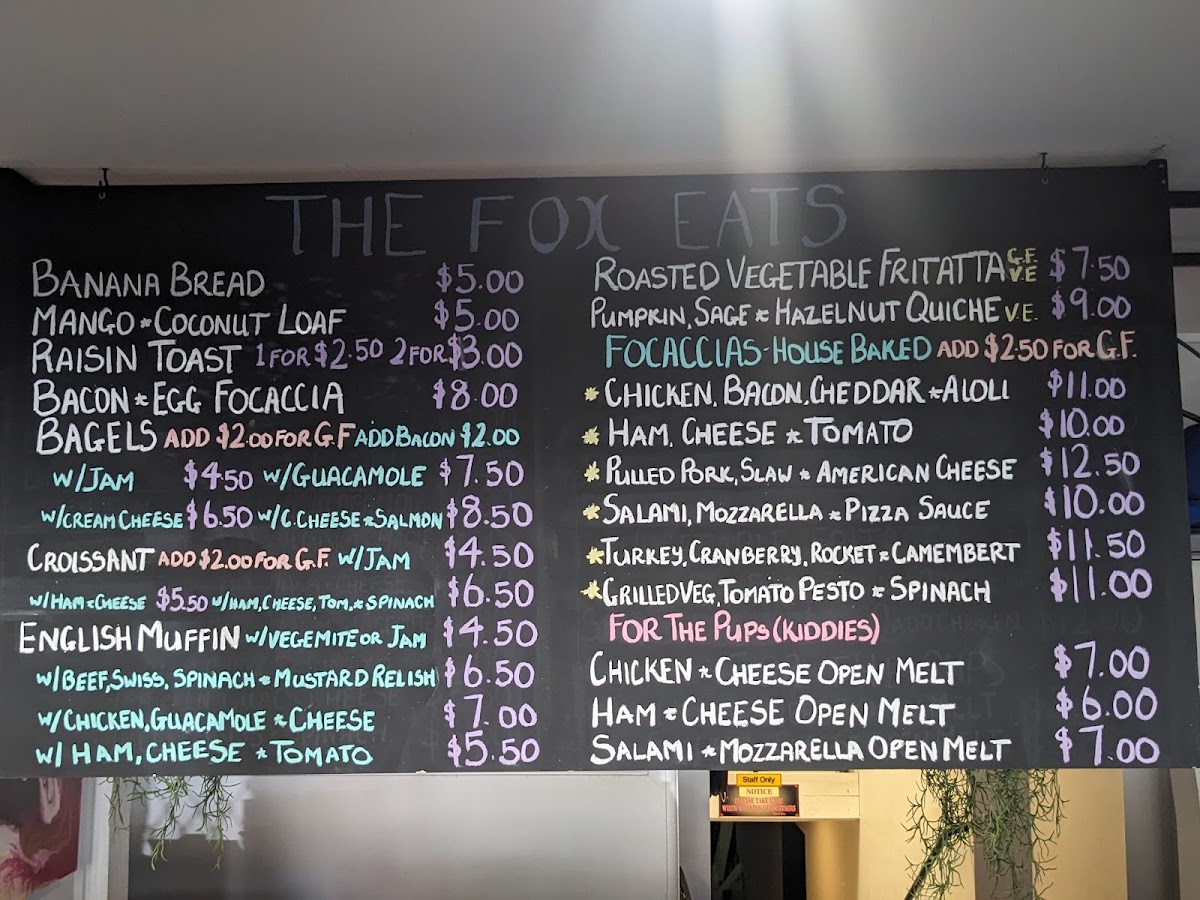 THE FOX EATS
BANANA BREAD $5.00
MANGO & COCONUT LOAF $5.00
RAISIN TOAST 1 FOR $2.50 2 FOR $3.00
BACON & EGG FOCACCIA $8.00
BAGELS ADD $2.00 FOR G.F ADD BACON $2.00
W/JAM $4.50 W/GUACAMOLE $7.50
W/CREAM CHEESE $6.50 W/C.CHEESE & SALMON $8.50
CROISSANT ADD $2.00 FOR G.F. W/JAM $4.50
W/HAM & CHEESE $5.50 W/HAM, CHEESE, TOM, & SPINACH $6.50
ENGLISH MUFFIN W/VEGEMITE OR JAM $4.50
W/BEEF, SWISS, SPINACH & MUSTARD RELISH $6.50
W/CHICKEN, GUACAMOLE & CHEESE $7.00
W/ HAM, CHEESE & TOMATO $5.50
ROASTED VEGETABLE FRITATTA G.F. V.E $7.50
PUMPKIN, SAGE & HAZELNUT QUICHE V.E. $9.00
FOCACCIAS - HOUSE BAKED ADD $2.50 FOR G.F.
CHICKEN, BACON, CHEDDAR & AIOLI $11.00
HAM, CHEESE & TOMATO $10.00
PULLED PORK, SLAW & AMERICAN CHEESE $12.50
SALAMI, MOZZARELLA & PIZZA SAUCE $10.00
TURKEY, CRANBERRY, ROCKET & CAMEMBERT $11.50
GRILLED VEG, TOMATO PESTO & SPINACH $11.00
FOR THE PUPS (KIDDIES)
CHICKEN & CHEESE OPEN MELT $7.00
HAM & CHEESE OPEN MELT $6.00
SALAMI & MOZZARELLA OPEN MELT $7.00
Staff Only
NOTICE
PLEASE TAKE CARE
WHEN USING STAIRS